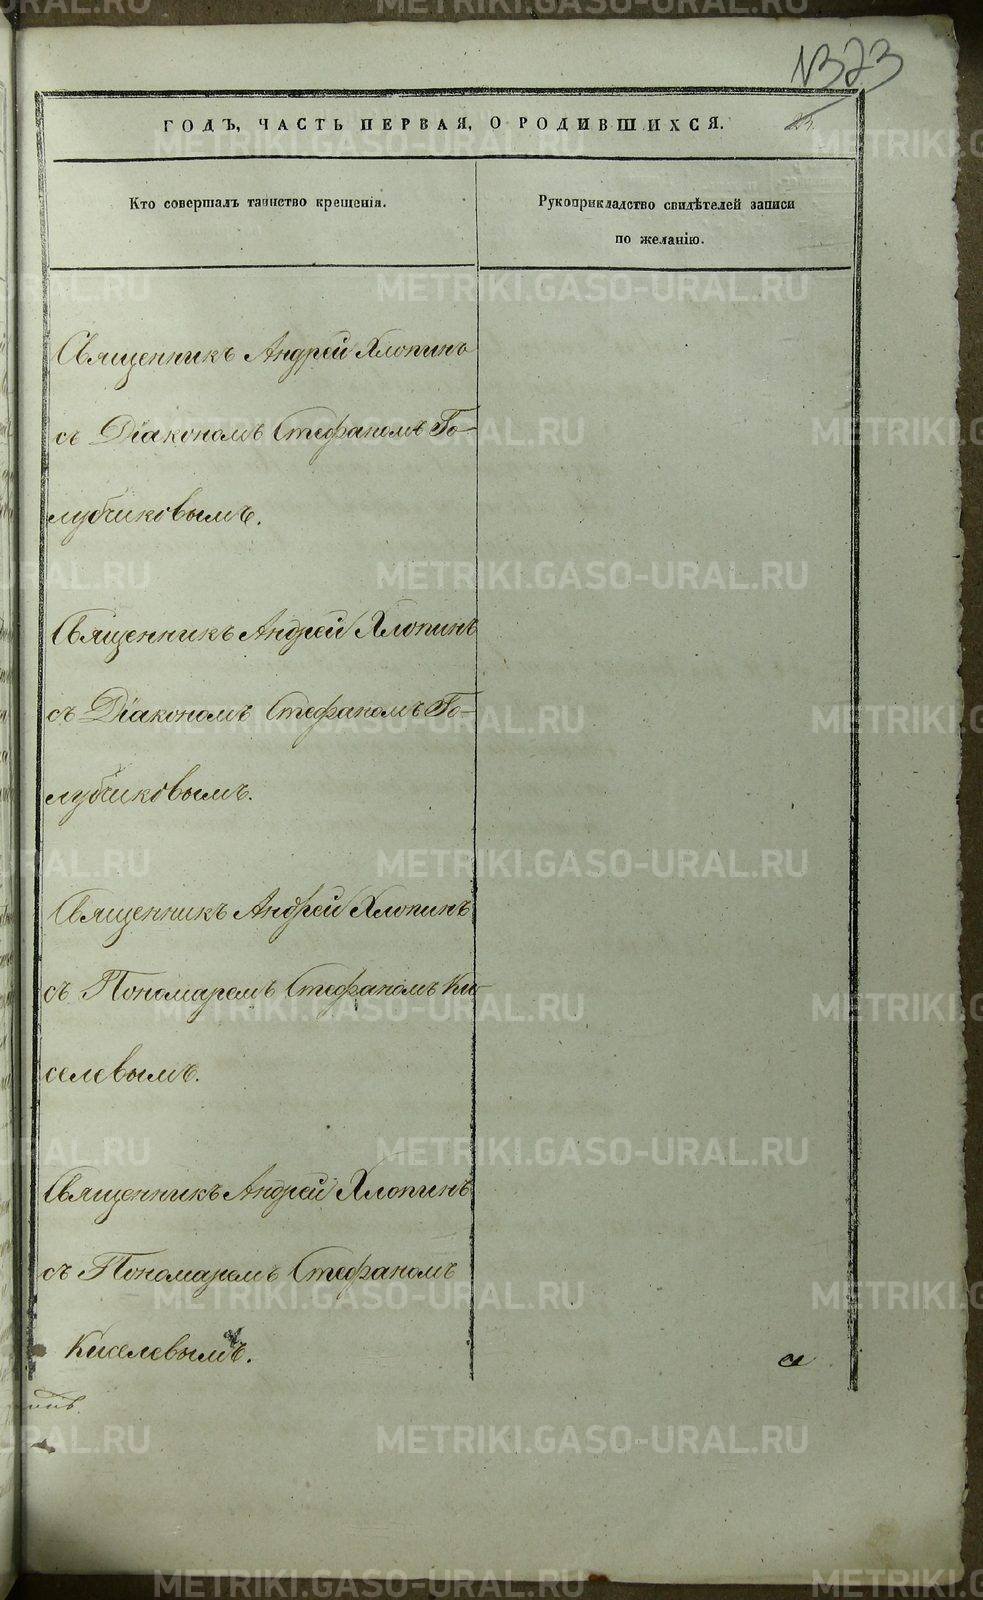 1323
ГОДЪ, ЧАСТЬ ПЕРВАЯ, О РОДИВШИХСЯ.
Кто совершалъ таинство крещенія.
Рукоприкладство свидѣтелей записи
по желанію.
Священникъ Андрей Хлопинъ
съ Діакономъ Стефаномъ Го-
лубчиковымъ.
Священникъ Андрей Хлопинъ
съ Діакономъ Стефаномъ Го-
лубчиковымъ.
Священникъ Андрей Хлопинъ
съ Пономаремъ Стефаномъ Ки-
селевымъ.
Священникъ Андрей Хлопинъ
съ Пономаремъ Стефаномъ
Киселевымъ.
METRIKI.GASO-URAL.RU